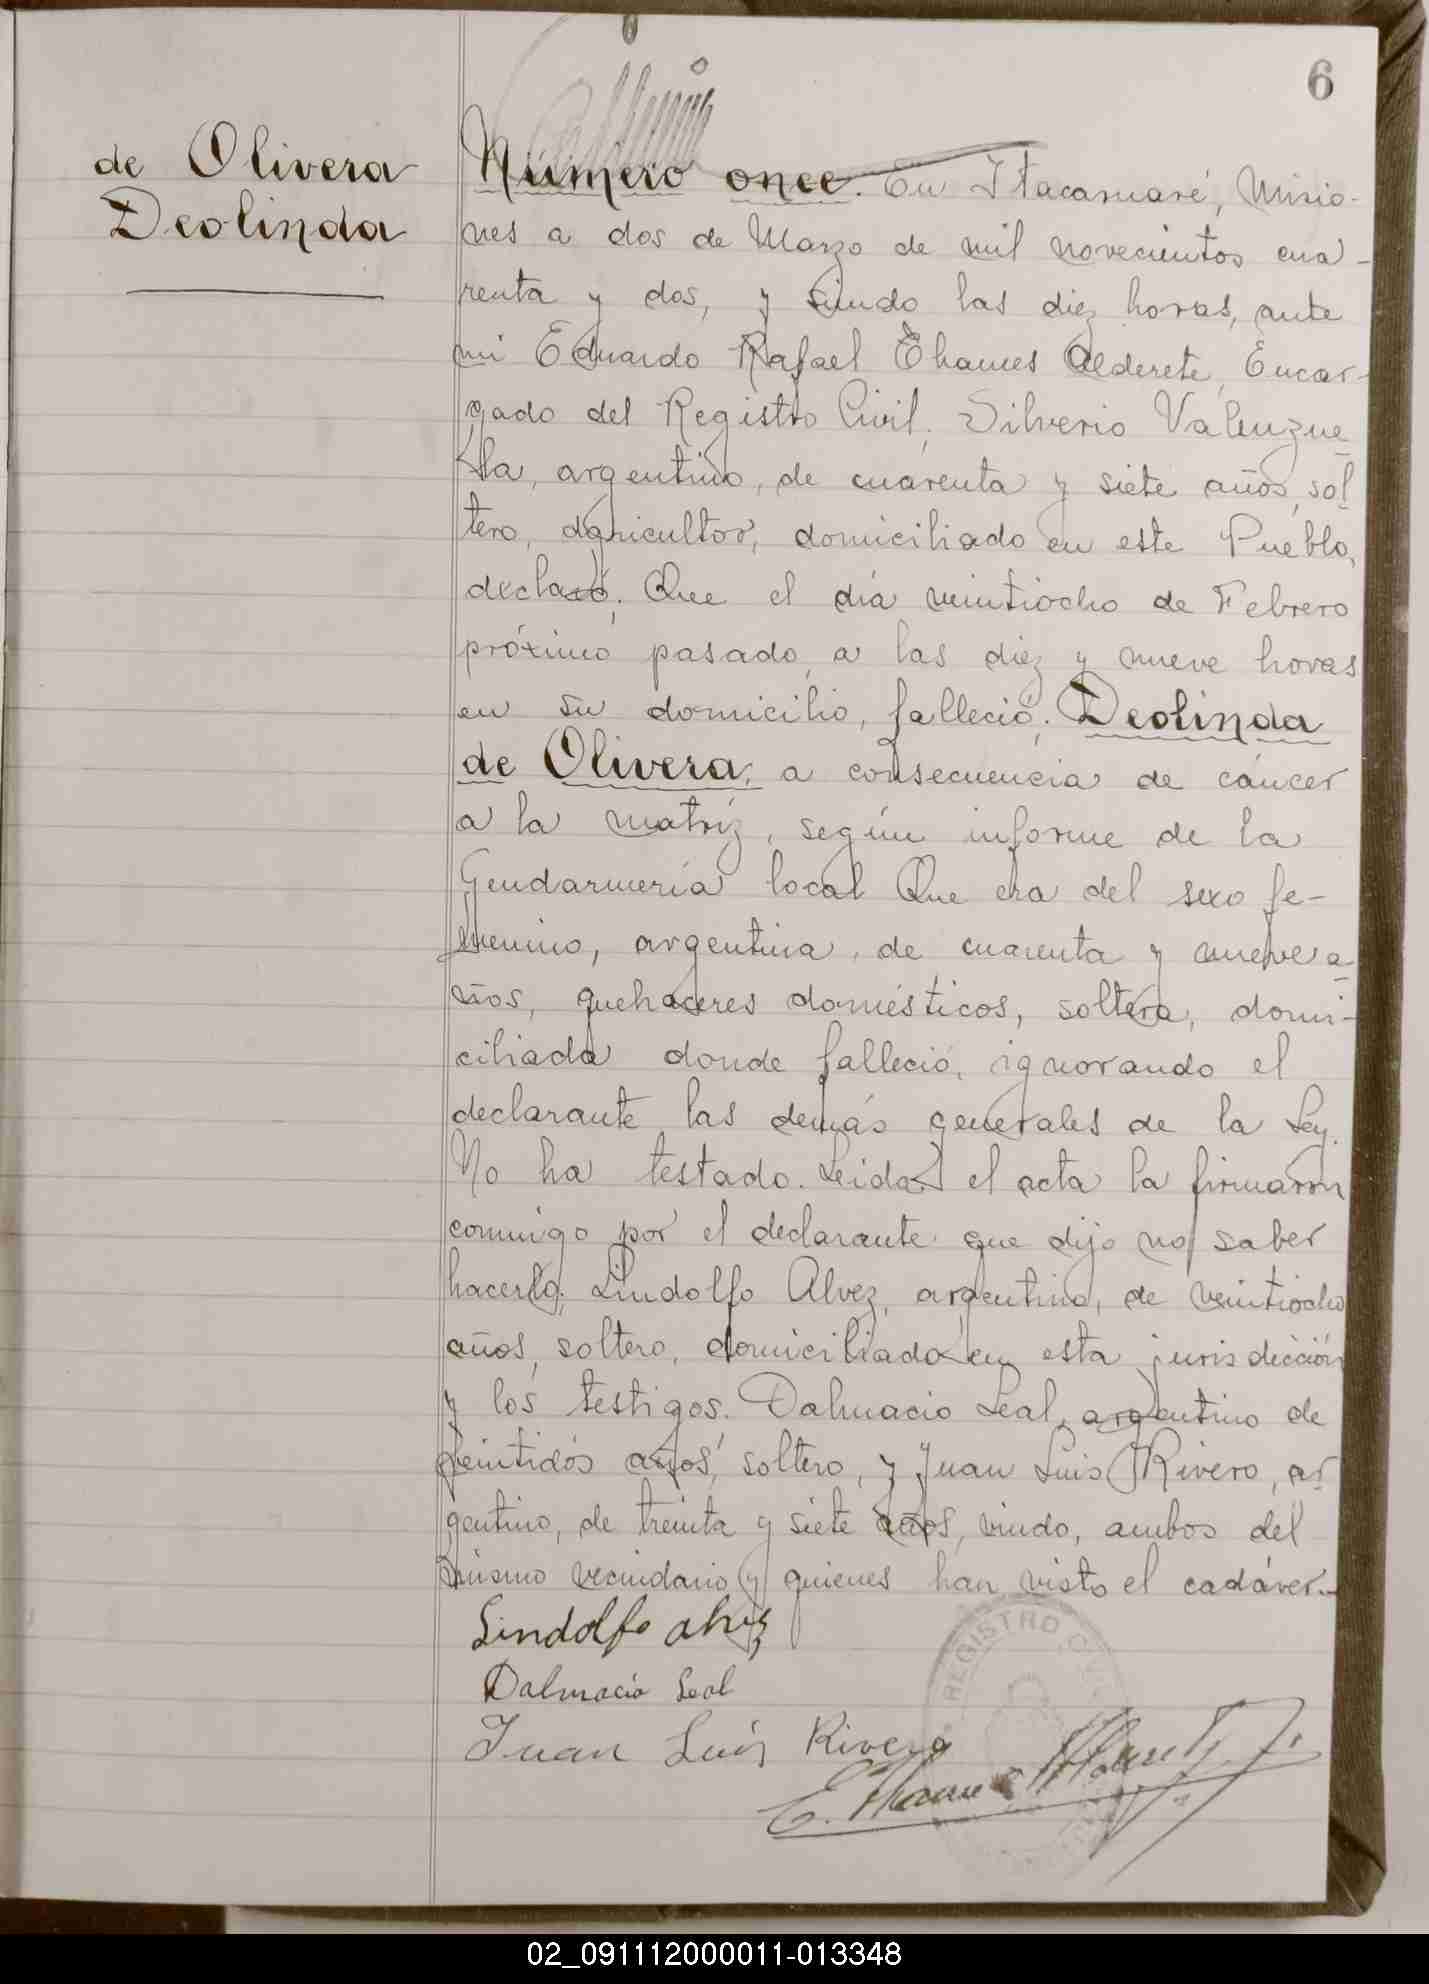 6
de Olivera
Deolinda
Número once. En Itacaruaré, Misio-
nes a dos de Marzo de mil novecientos cua-
renta y dos, y siendo las diez horas, ante
mi Eduardo Rafael Thames Alderete, Encar-
gado del Registro Civil, Silverio Valenzue
la, argentino, de cuarenta y siete años, sol
tero, agricultor, domiciliado en este Pueblo,
declaró: Que el día veintiocho de Febrero
próximo pasado, a las diez y nueve horas
en su domicilio, falleció: Deolinda
de Olivera, a consecuencia de cáncer
a la matríz, según informe de la
Gendarmería local Que era del sexo fe-
menino, argentina, de cuarenta y nueve a
ños, quehaceres domésticos, soltera, domi-
ciliada donde falleció, ignorando el
declarante las demás generales de la Ley.
No ha testado. Leida el acta la firmaron
conmigo por el declarante que dijo no saber
hacerlo, Lindolfo Alvez, argentino, de veintiocho
años, soltero, domiciliado en esta jurisdicción
y los testigos. Dalmacio Leal, argentino de
veintidós años, soltero, y Juan Luis Rivero, ar
gentino, de treinta y siete años, viudo, ambos del
mismo vecindario y quienes han visto el cadáver.-
Lindolfo alvez
Dalmacio Leal
Juan Luis Rivero
REGISTRO CIVIL
E. Thames Alderete
02_091112000011-013348